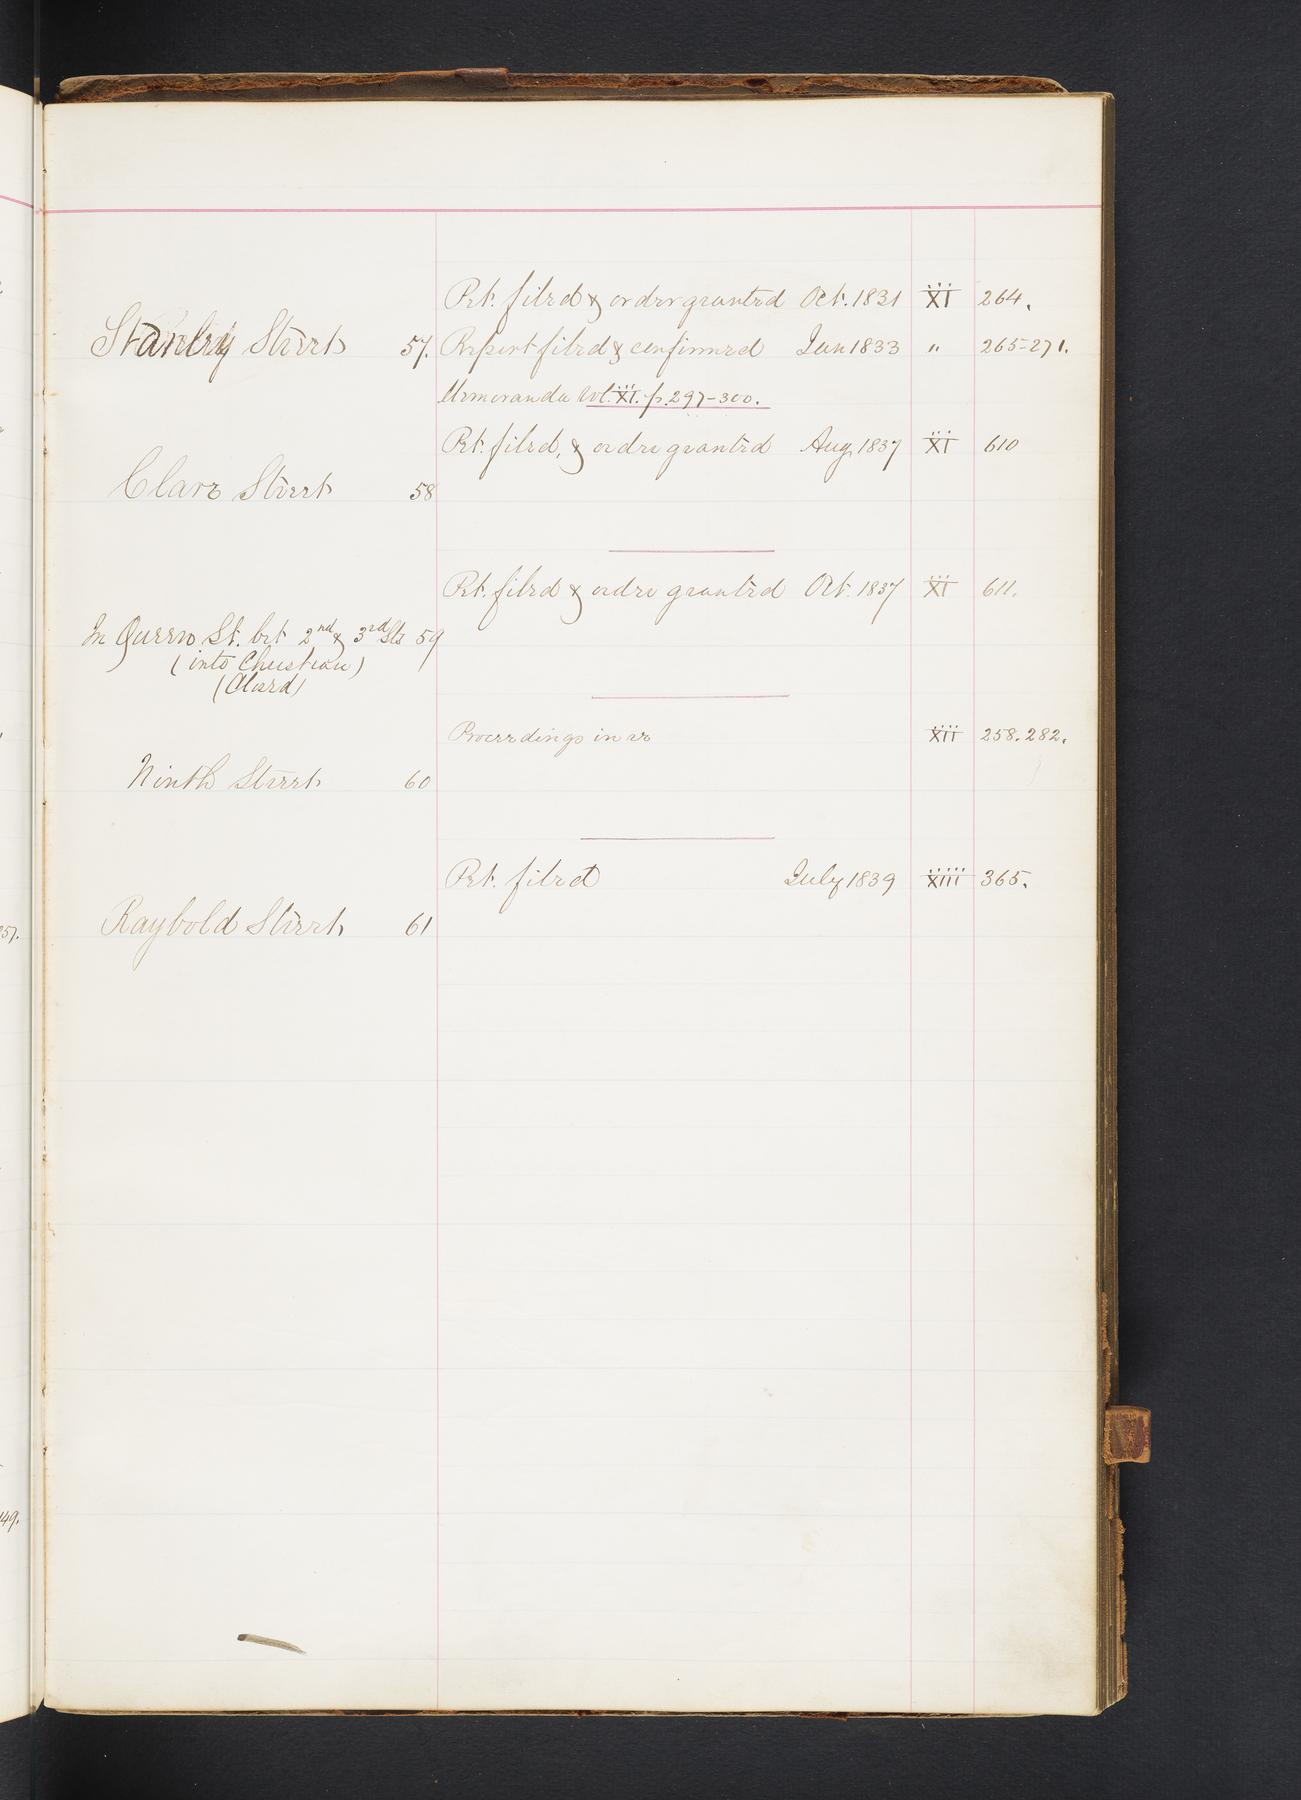 Pet. filed & order granted Oct. 1831 XI 264.
Stanley Street 57. Report filed & confirmed Jan 1833 " 265-271.
Memoranda vol. XI. p. 297-300.
Pet. filed, & order granted Aug. 1837 XI 610
Clare Street 58
Pet. filed & order granted Oct. 1837 XI 611.
In Queen St. bet 2nd & 3rd Sts 59
(into Christian)
(Closed)
Proceedings in re XII 258. 282.
Ninth Street 60
Pet. filed July 1839 XIII 365.
Raybold Street 61
257.
149.